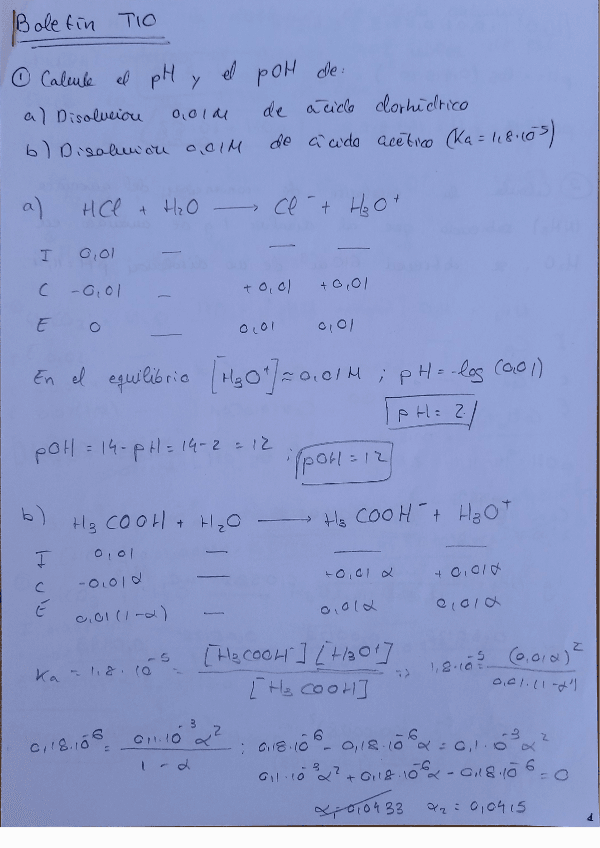 Boletín T10
① Calcule el pH y el pOH de:
a) Disolución 0,01M de ácido clorhídrico
b) Disolución 0,01M de ácido acético (Ka = 1,8·10⁻⁵)
a) HCl + H₂O ⟶ Cl⁻ + H₃O⁺
I 0,01 — — —
C -0,01 — +0,01 +0,01
E 0 — 0,01 0,01
En el equilibrio [H₃O⁺] ≈ 0,01M ; pH = -log (0,01)
pH = 2
pOH = 14 - pH = 14 - 2 = 12 ; pOH = 12
b) H₃COOH + H₂O ⟶ H₃COOH⁻ + H₃O⁺
I 0,01 — — —
C -0,01α — +0,01α +0,01α
E 0,01(1-α) — 0,01α 0,01α
Ka = 1,8·10⁻⁵ = [H₃COOH⁻] [H₃O⁺] / [H₃COOH] => 1,8·10⁻⁵ = (0,01α)² / 0,01·(1-α)
0,18·10⁻⁶ = 0,1·10⁻³α² / 1-α ; 0,18·10⁻⁶ - 0,18·10⁻⁶α = 0,1·10⁻³α²
0,1·10⁻³α² + 0,18·10⁻⁶α - 0,18·10⁻⁶ = 0
α₁ = 0,0433 α₂ = 0,0415